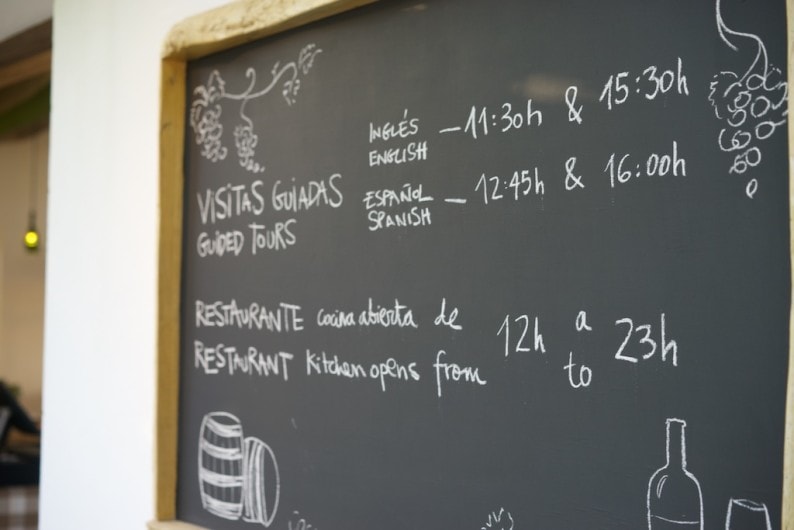 INGLÉS
ENGLISH — 11:30h & 15:30h
VISITAS GUIADAS
GUIDED TOURS
ESPAÑOL
SPANISH — 12:45h & 16:00h
RESTAURANTE cocina abierta de 12h a 23h
RESTAURANT Kitchen opens from to